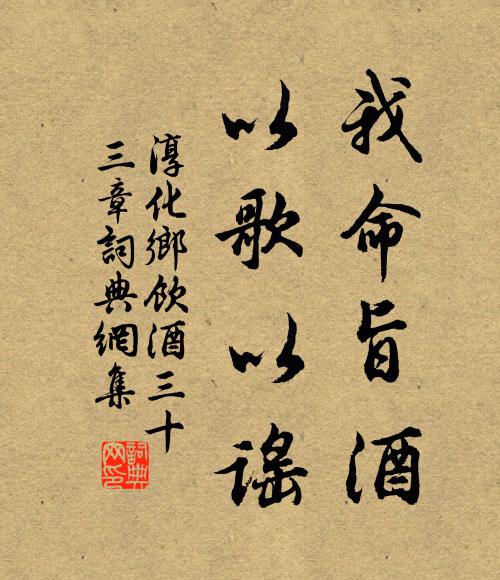 我命旨酒
以歌以謠
淳化鄉飲酒三十
三章詞典網集
詞典网印